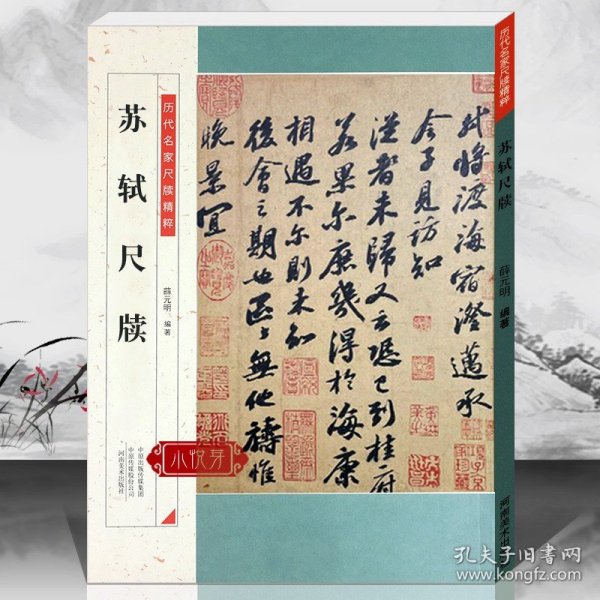 历代名家尺牍精粹
苏轼尺牍
薛元明 编著
中原出版传媒集团
中原传媒股份公司
河南美术出版社
轼将渡海宿澄迈承
令子见访知
从者未归又云恐已到桂府
若果尔庶几得于海康
相遇不尔则未知
后会之期也区区无他祷惟
晚景宜
小悦芽
历代名家尺牍精粹
苏轼尺牍
薛元明 编著
河南美术出
孔夫子旧书网
www.kongfz.com